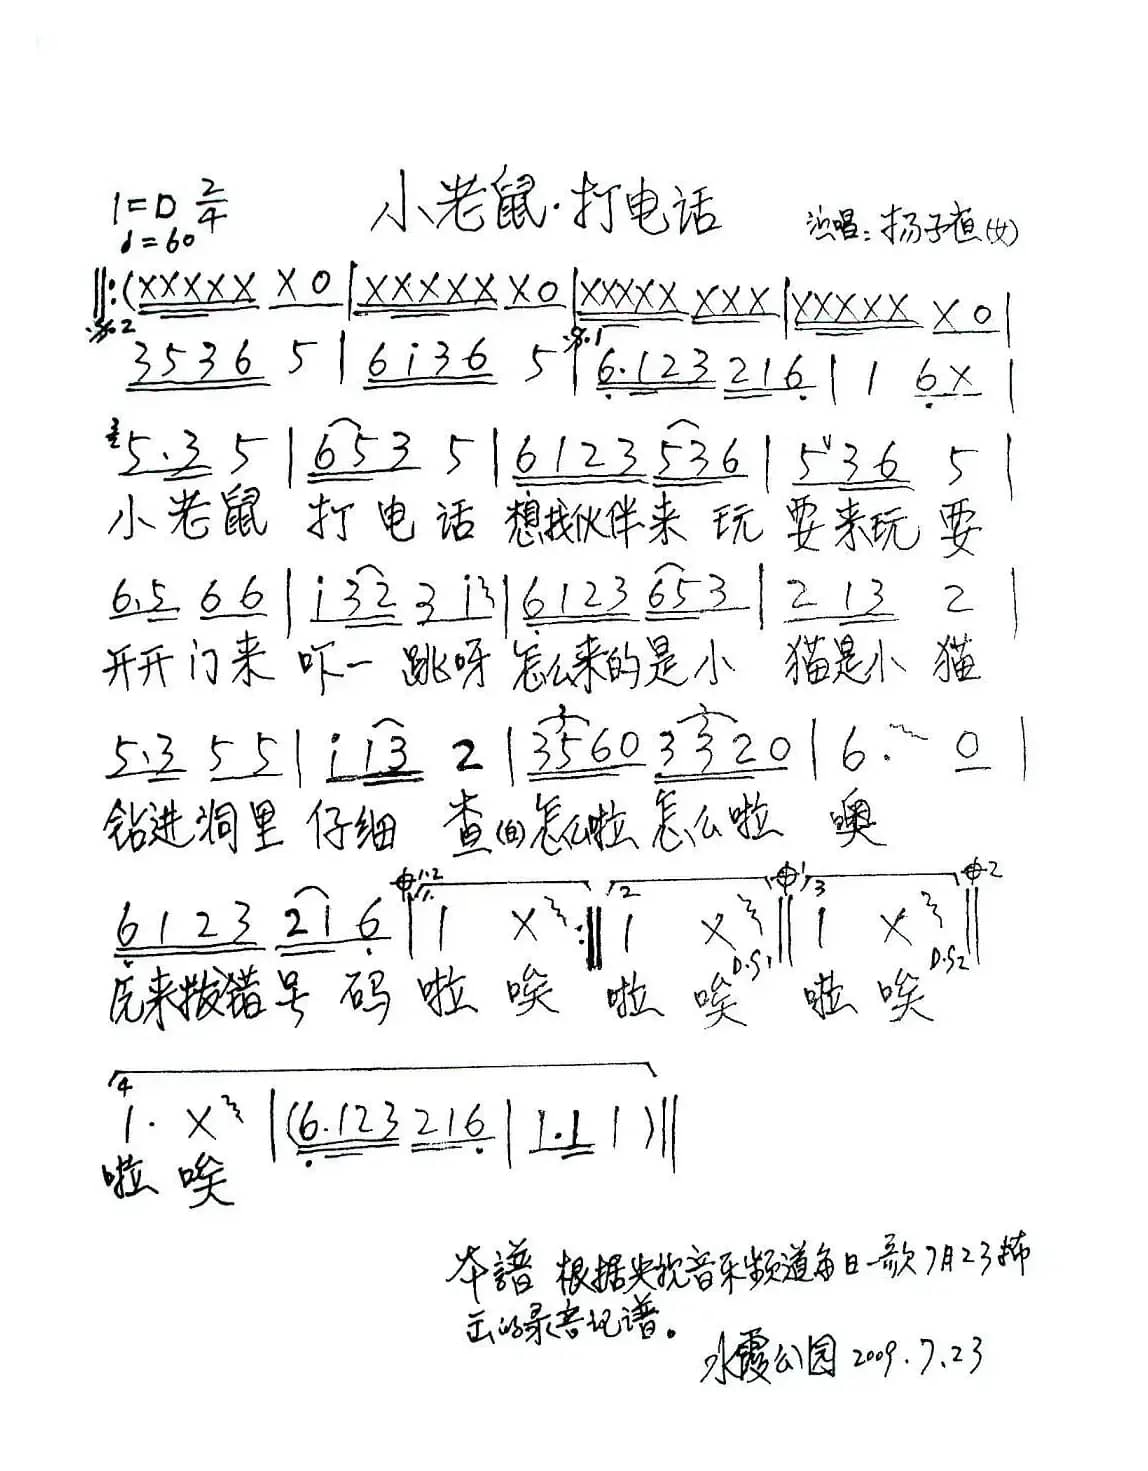 小老鼠·打电话
1=D 2/4
♩=60
演唱：杨子直(女)
‖:(XXXXX X0|XXXXX X0|XXXXX XXX|XXXXX X0|
𝄋.2 3536 5|6i36 5|𝄋.1 6.123 216|1 6X|
5.3 5|653 5|6123 536|5 36 5|
小老鼠 打电话 想找伙伴来 玩 耍来玩 耍
6.5 66|i32 3i|6123 653|2 13 2|
开开门来 吓一 跳呀 怎么来的是小 猫是小 猫
5.3 55|ii3 2|3560 3320|6. 0|
钻进洞里 仔细 查(白)怎么啦 怎么啦 噢
6123 216|1 X:‖1 X D.S1‖1 X D.S2‖
原来拨错号 码 啦 唉 啦 唉 啦 唉
4
1. X|(6.123 216|1.1 1)‖
啦 唉
本譜 根据央视音乐频道每日一歌7月23播
出的录音记谱。
水霞公园 2009.7.23